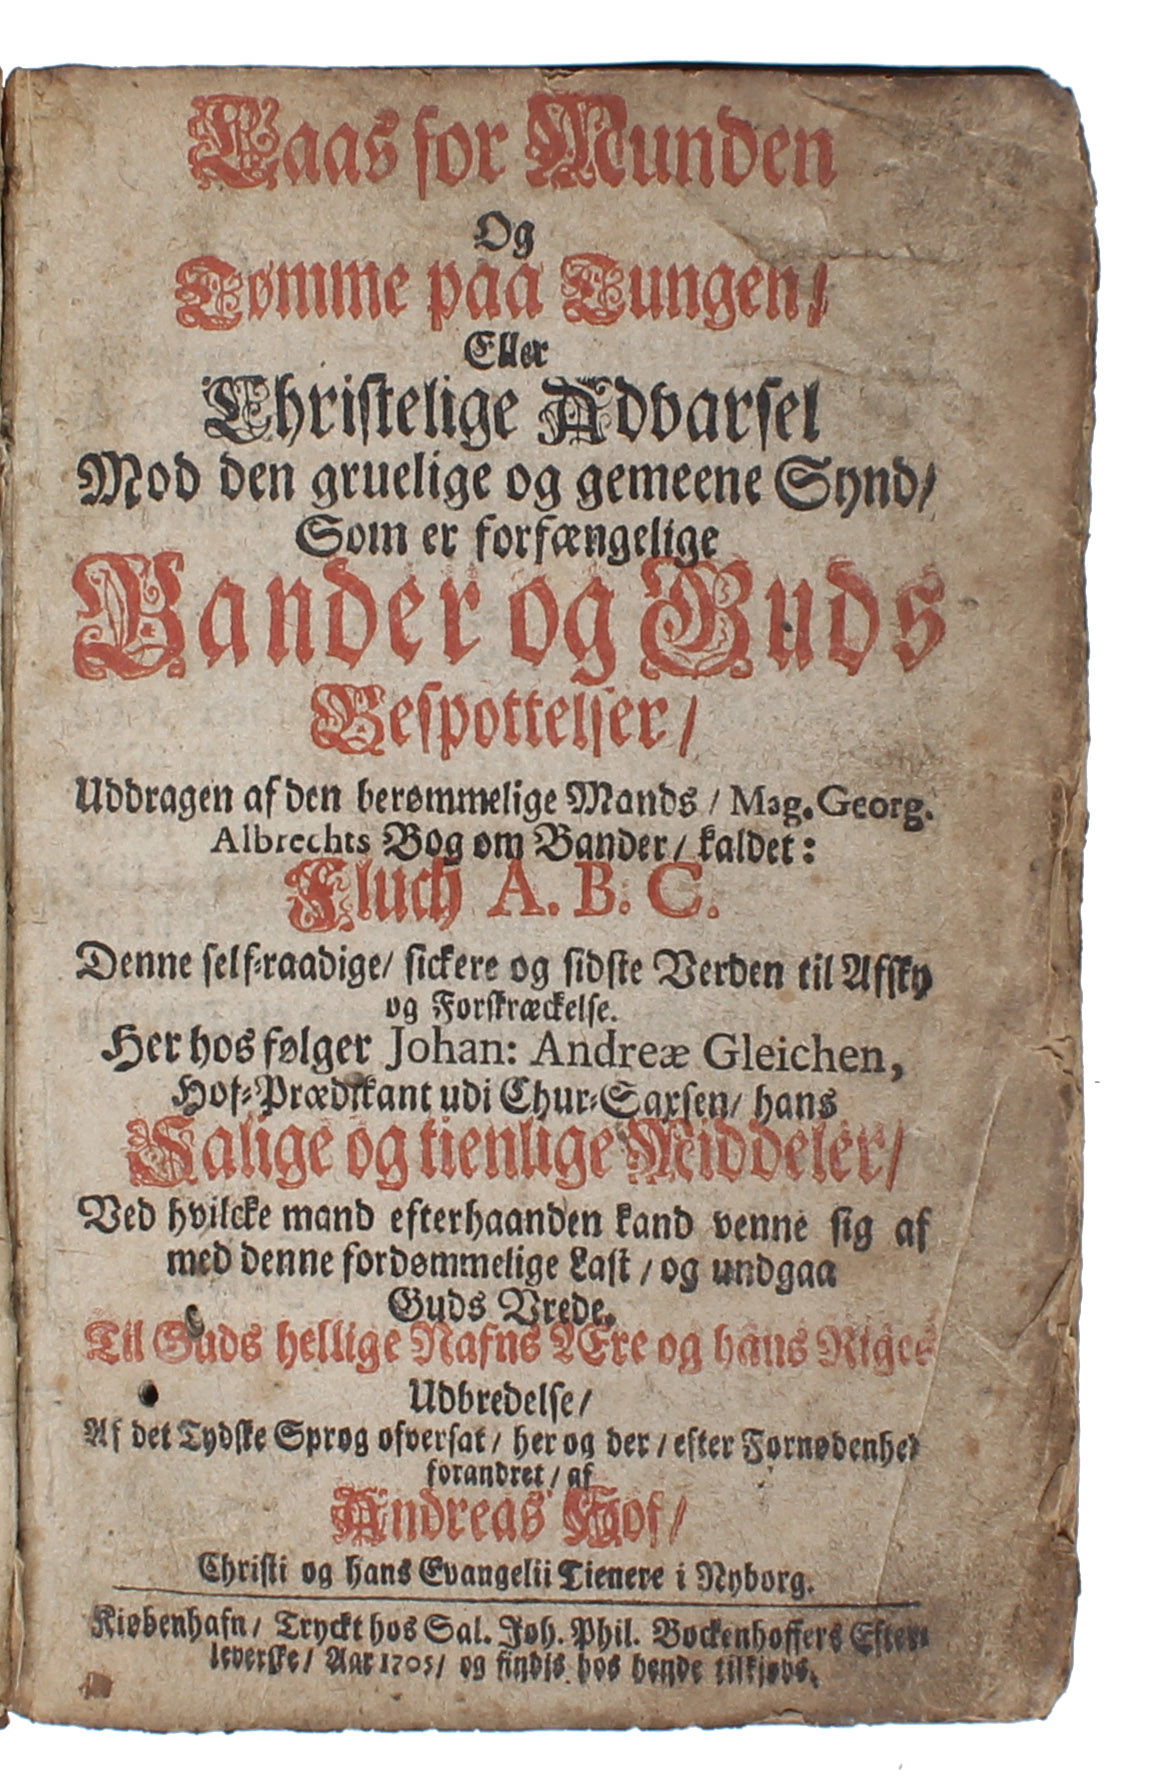 Laas for Munden
Og
Tømme paa Tungen/
Eller
Christelige Advarsel
Mod den gruelige og gemeene Synd/
Som er forfængelige
Bander og Guds
Bespottelser/
Uddragen af den berømmelige Mands / Mag. Georg.
Albrechts Bog om Bander / kaldet:
Fluch A. B. C.
Denne self-raadige/ sickere og sidste Verden til Afsky
og Forskræckelse.
Her hos følger Johan: Andreæ Gleichen,
Hof-Prædikant udi Chur-Saxsen/ hans
Salige og tienlige Middeler/
Ved hvilcke mand efterhaanden kand venne sig af
med denne fordømmelige Last / og undgaa
Guds Vrede.
Til Guds hellige Nafns Ære og hans Riges
Udbredelse/
Af det Tydske Sprog ofversat / her og der / efter Fornødenhed
forandret / af
Andreas Hof/
Christi og hans Evangelii Tienere i Nyborg.
Kiøbenhafn/ Tryckt hos Sal. Joh. Phil. Bockenhoffers Efter-
leverske/ Aar 1705/ og findis hos hende tilkiøbs.